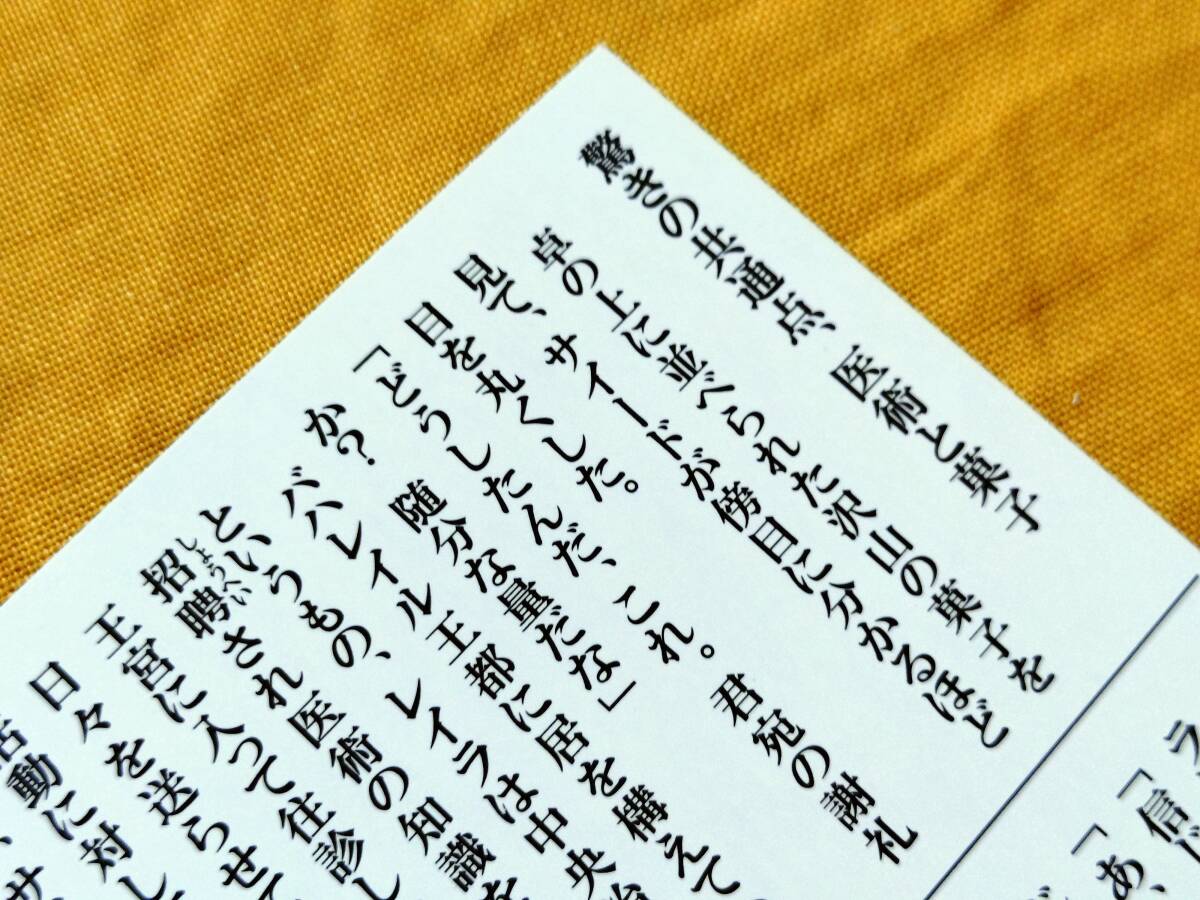 驚きの共通点、医術と菓子
卓の上に並べられた沢山の菓子を
見て、サイードが傍目に分かるほど
目を丸くした。
「どうしたんだ、これ。君宛の謝礼
か? 随分な量だな」
バハレイル王都に居を構えて
というもの、レイラは中央治
招聘され医術の知識を
しょうへい
王宮に入って往診し
日々を送らせて
活動に対し
サ
ラ
「信じ
「あ、